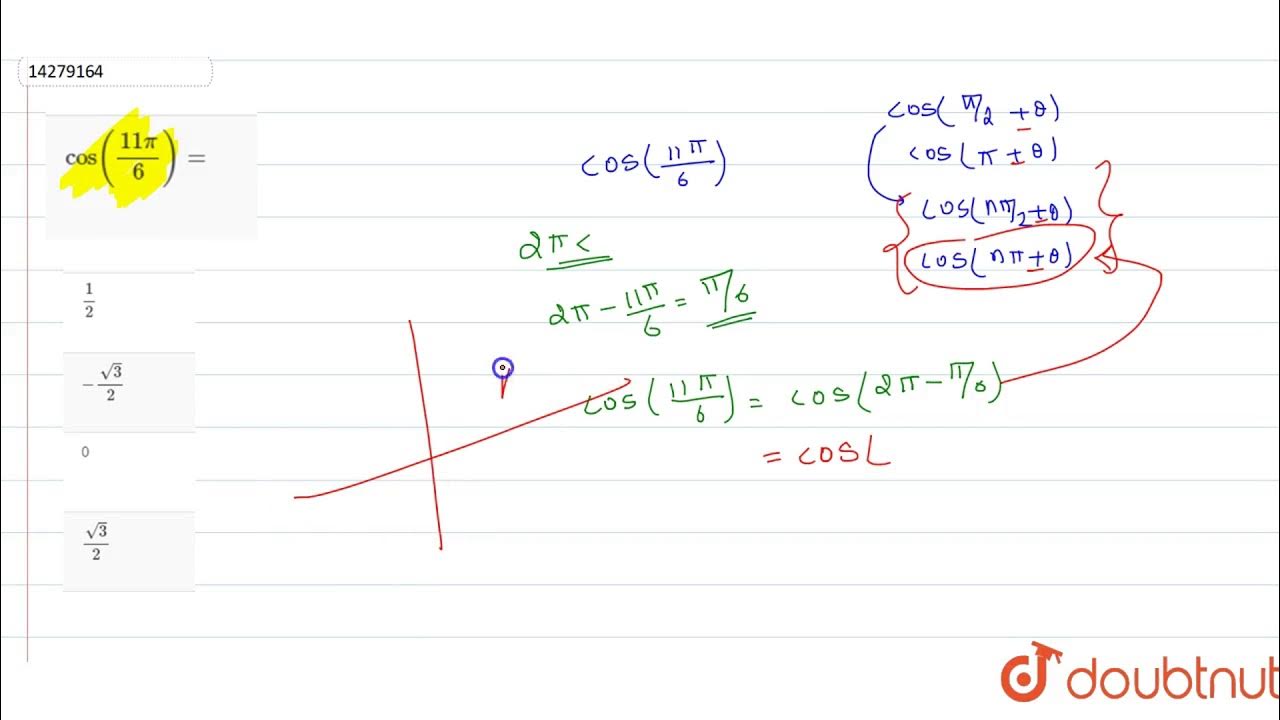 14279164
cos(11π/6) =
1/2
-√3/2
0
√3/2
cos(11π/6)
2π <
2π - 11π/6 = π/6
cos(11π/6) = cos(2π - π/6)
= cos(
cos(π/2 ± θ)
cos(π ± θ)
cos(nπ/2 ± θ)
cos(nπ ± θ)
doubtnut